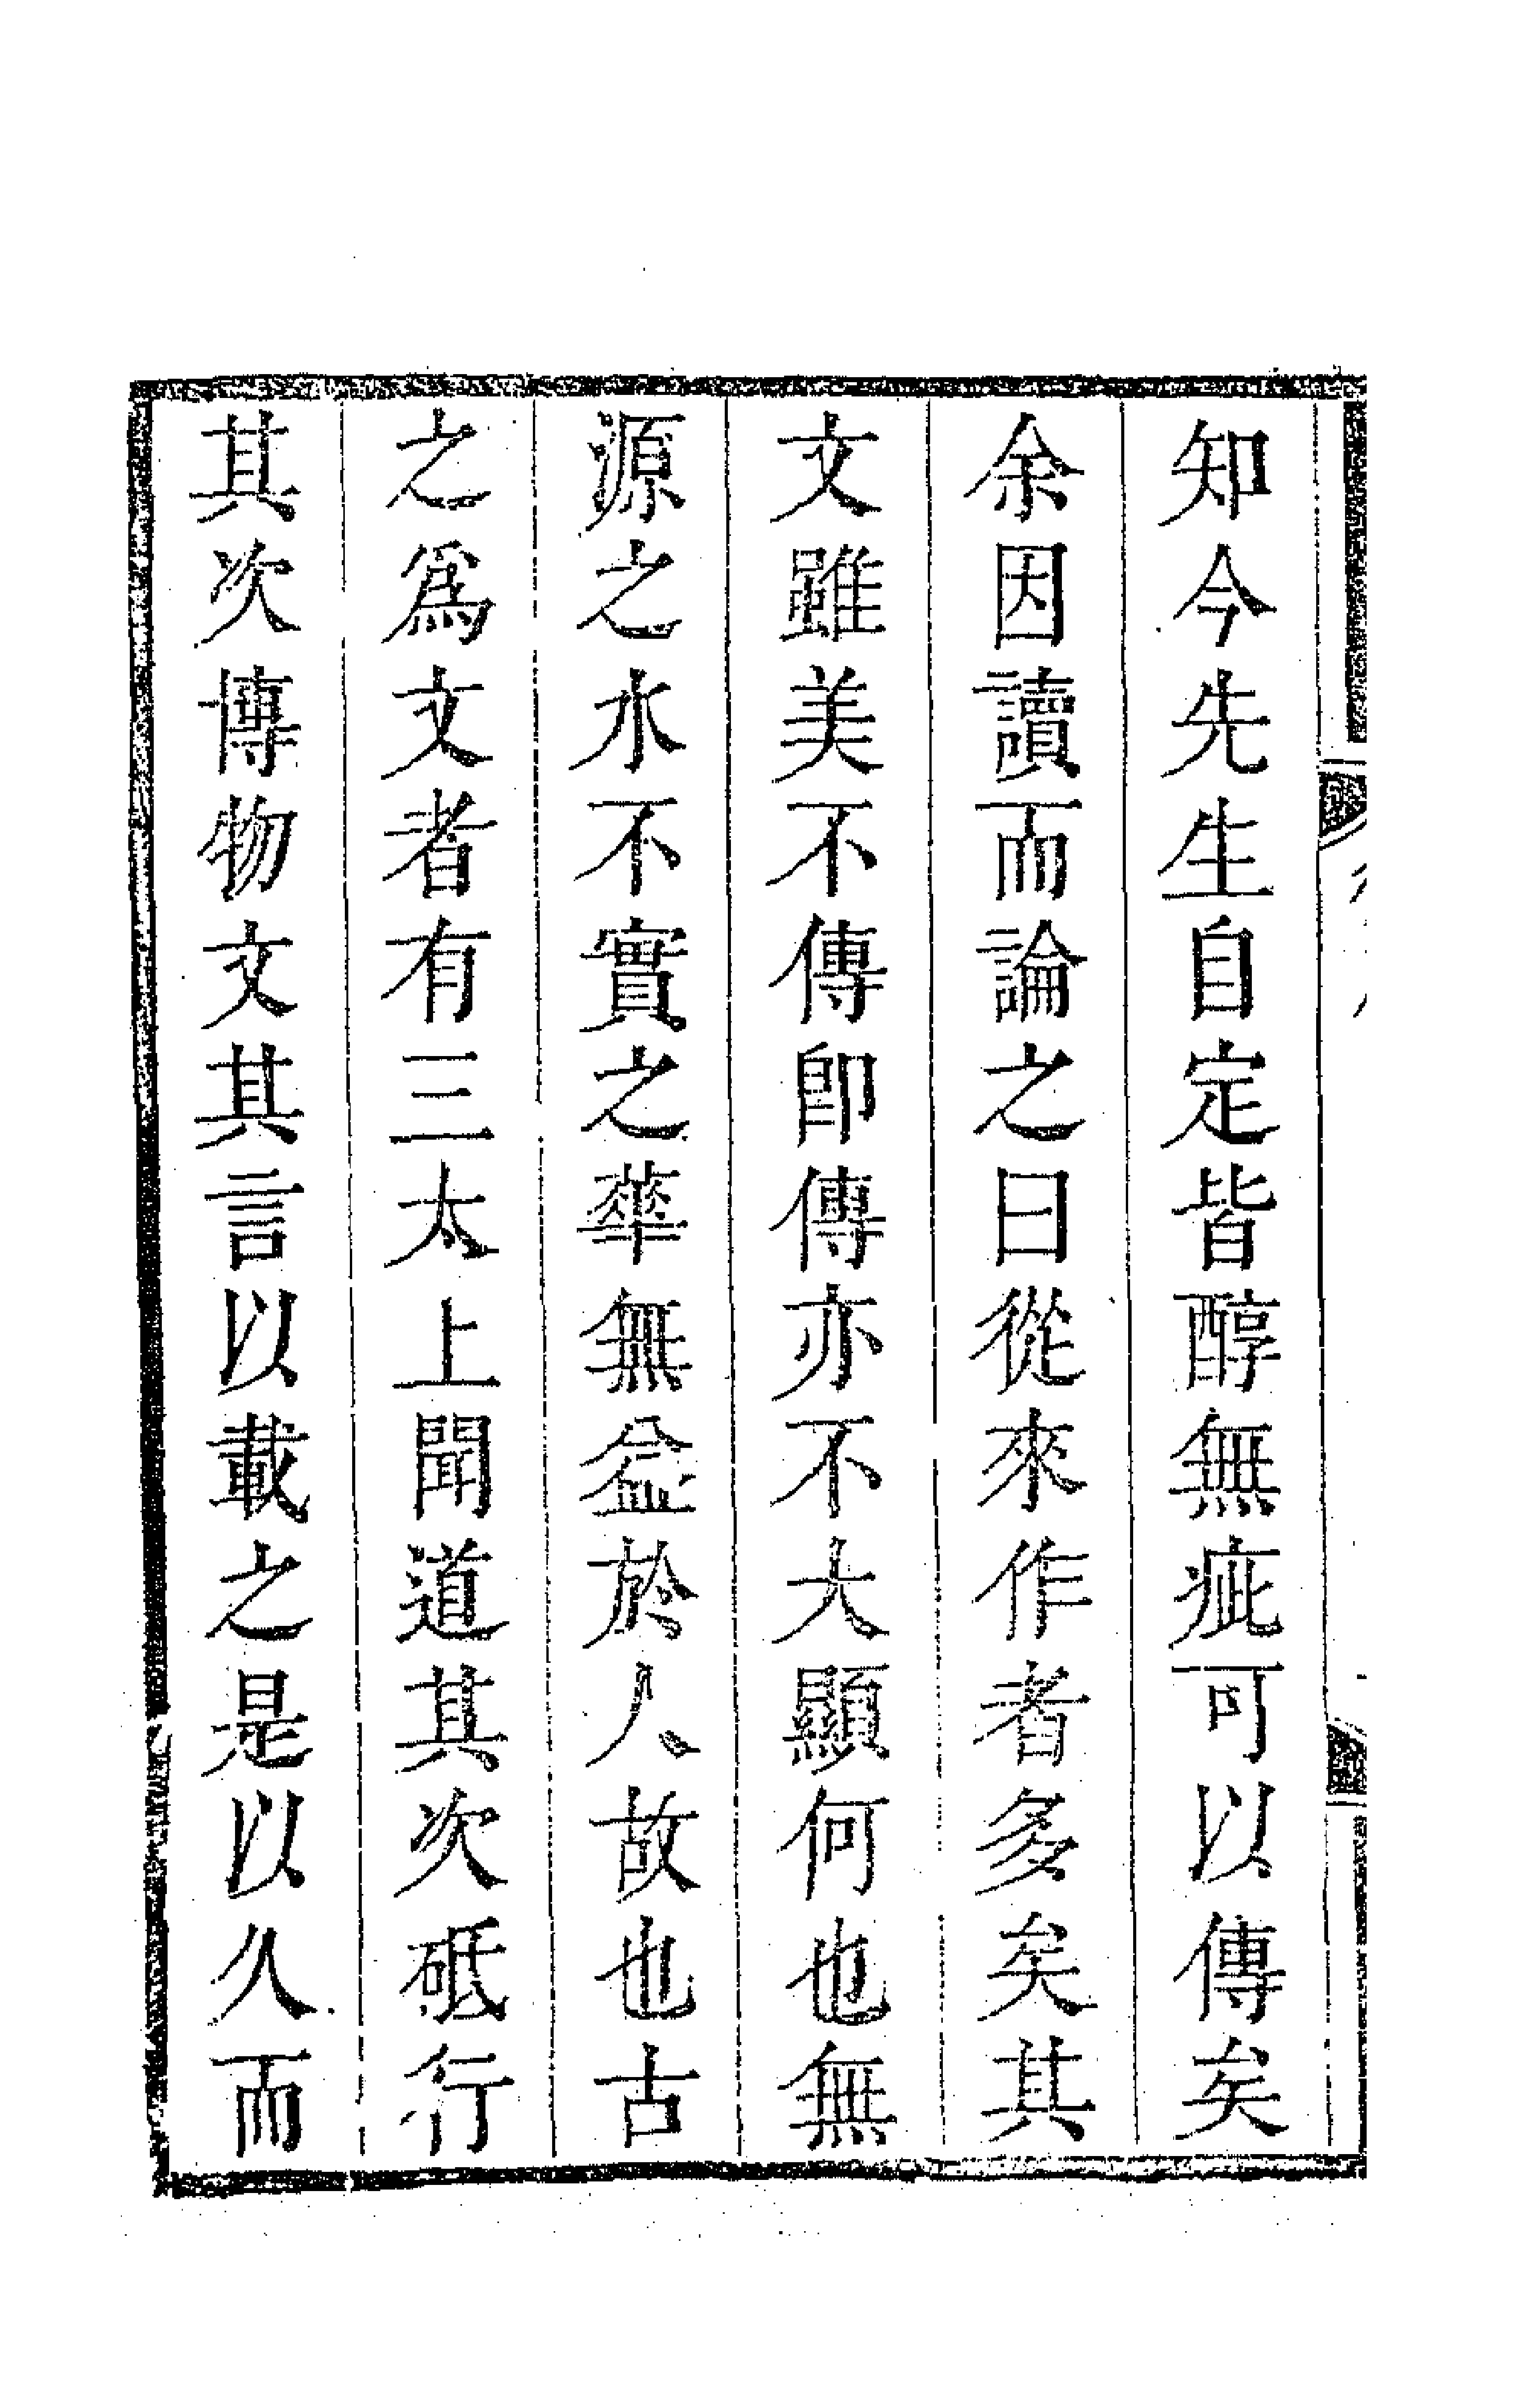 知今先生自定皆醇無疵可以傳矣
余因讀而論之曰從來作者多矣其
文雖美不傳卽傳亦不大顯何也無
源之水不實之華無益於人故也古
之爲文者有三太上聞道其次砥行
其次博物文其言以載之是以久而